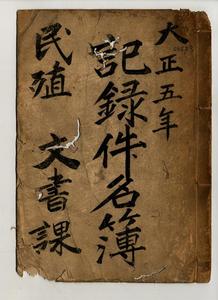 大正五年
記録件名簿
民殖 文書課